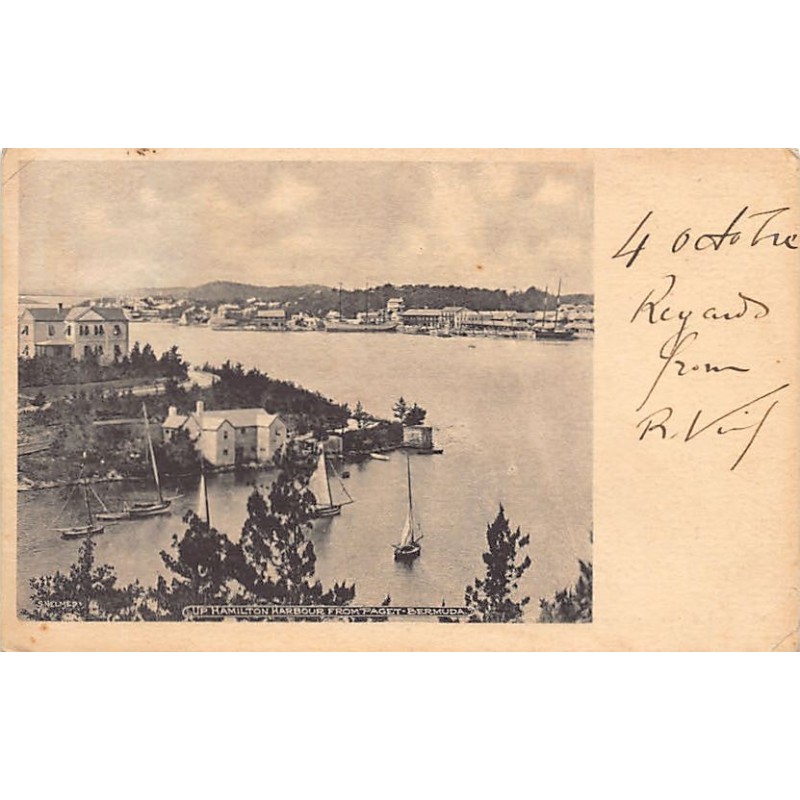 4 Octobre
Regards
from
R.
UP HAMILTON HARBOUR FROM PAGET - BERMUDA.